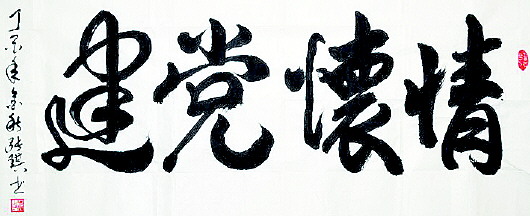 情懷党建
丁酉年金秋 书